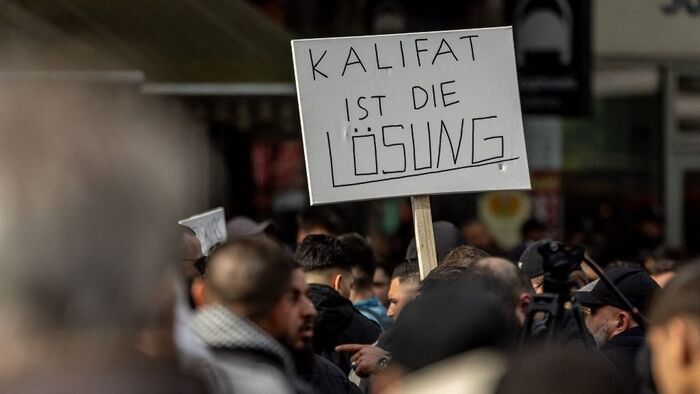 KALIFAT
IST DIE
LÖSUNG